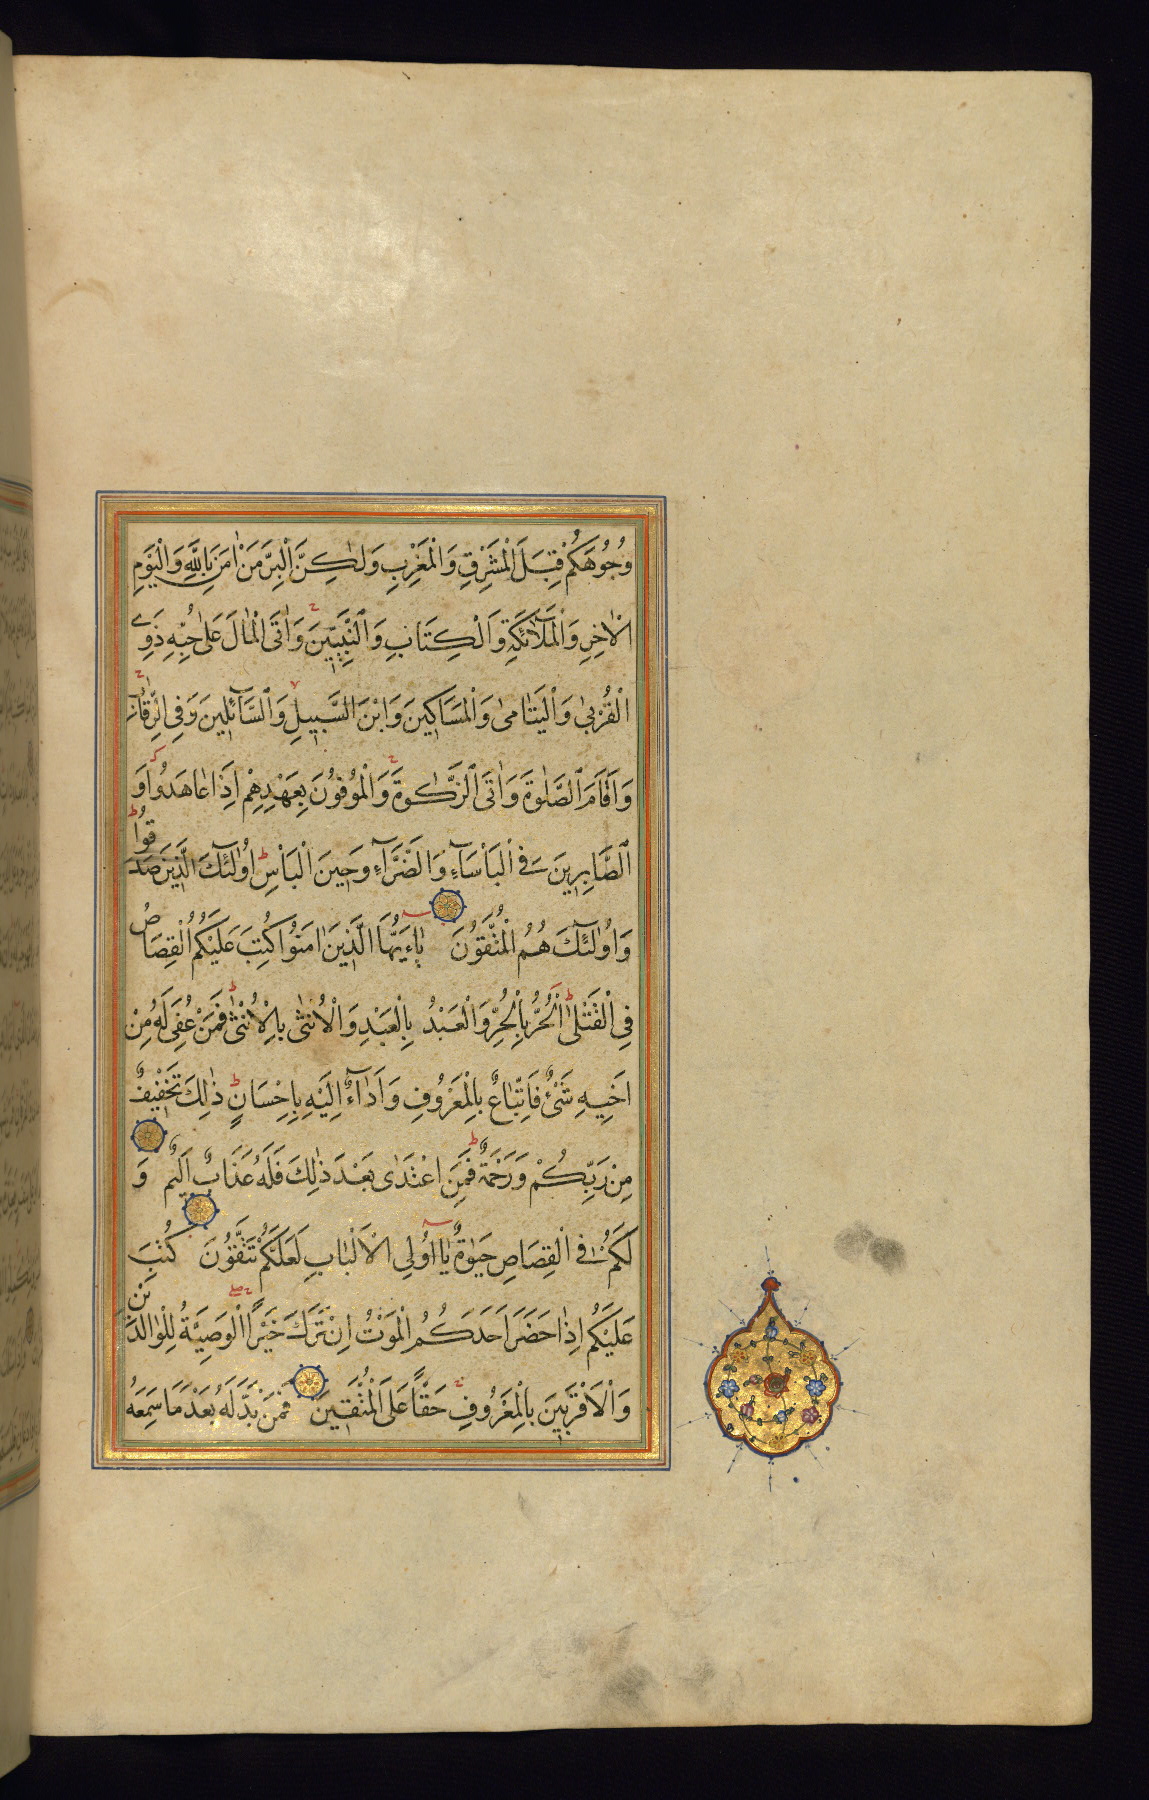 وُجُوهَكُمْ قِبَلَ الْمَشْرِقِ وَالْمَغْرِبِ وَلٰكِنَّ الْبِرَّ مَنْ اٰمَنَ بِاللّٰهِ وَالْيَوْمِ
الْاٰخِرِ وَالْمَلٰٓئِكَةِ وَالْكِتَابِ وَالنَّبِيّٖنَ وَاٰتَى الْمَالَ عَلٰى حُبِّهٖ ذَوِي
الْقُرْبٰى وَالْيَتَامٰى وَالْمَسَاكِينَ وَابْنَ السَّبِيلِ وَالسَّآئِلِينَ وَفِي الرِّقَابِ
وَاَقَامَ الصَّلٰوةَ وَاٰتَى الزَّكٰوةَ وَالْمُوفُونَ بِعَهْدِهِمْ اِذَا عَاهَدُوا وَ
الصَّابِرِينَ فِي الْبَاْسَآءِ وَالضَّرَّآءِ وَحِينَ الْبَاْسِ اُولٰٓئِكَ الَّذِينَ صَدَقُوا
وَاُولٰٓئِكَ هُمُ الْمُتَّقُونَ يٰٓاَيُّهَا الَّذِينَ اٰمَنُوا كُتِبَ عَلَيْكُمُ الْقِصَاصُ
فِي الْقَتْلٰى اَلْحُرُّ بِالْحُرِّ وَالْعَبْدُ بِالْعَبْدِ وَالْاُنْثٰى بِالْاُنْثٰى فَمَنْ عُفِيَ لَهُ مِنْ
اَخِيهِ شَيْءٌ فَاتِّبَاعٌ بِالْمَعْرُوفِ وَاَدَآءٌ اِلَيْهِ بِاِحْسَانٍ ذٰلِكَ تَخْفِيفٌ
مِنْ رَبِّكُمْ وَرَحْمَةٌ فَمَنِ اعْتَدٰى بَعْدَ ذٰلِكَ فَلَهُ عَذَابٌ اَلِيمٌ وَ
لَكُمْ فِي الْقِصَاصِ حَيٰوةٌ يَآ اُولِي الْاَلْبَابِ لَعَلَّكُمْ تَتَّقُونَ كُتِبَ
عَلَيْكُمْ اِذَا حَضَرَ اَحَدَكُمُ الْمَوْتُ اِنْ تَرَكَ خَيْرًا الْوَصِيَّةُ لِلْوَالِدَيْنِ
وَالْاَقْرَبِينَ بِالْمَعْرُوفِ حَقًّا عَلَى الْمُتَّقِينَ فَمَنْ بَدَّلَهُ بَعْدَ مَا سَمِعَهُ